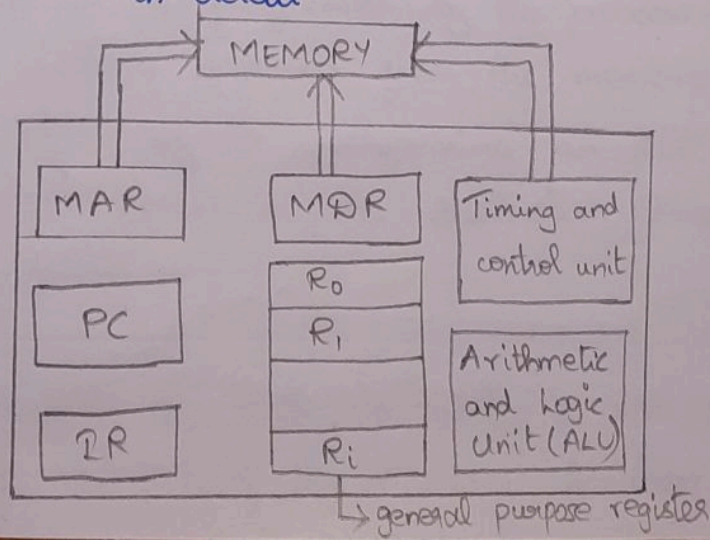 in detail
MEMORY
MAR
MDR
Timing and
control unit
R0
PC
R1
Arithmetic
and Logic
Unit (ALU)
IR
Ri
general purpose register